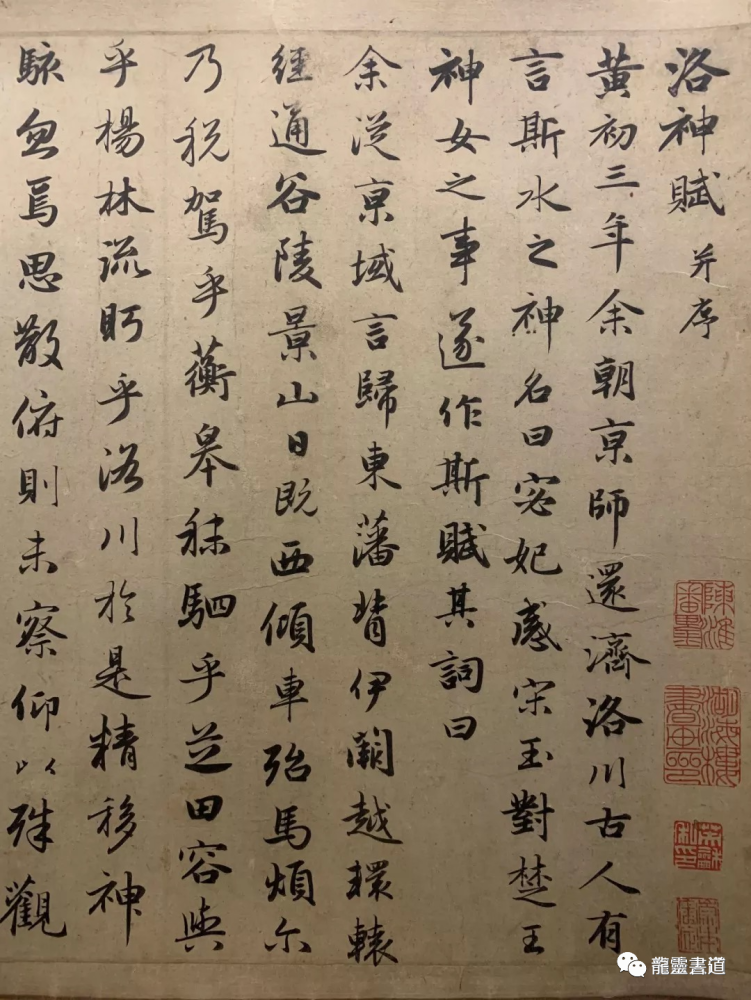 洛神賦 并序
黃初三年余朝亰師還濟洛川古人有
言斯水之神名曰宓妃感宋玉對楚王
神女之事遂作斯賦其詞曰
余從亰域言歸東藩背伊闕越轘轅
經通谷陵景山日既西傾車殆馬煩尔
乃稅駕乎蘅皋秣駟乎芝田容與
乎楊林流眄乎洛川於是精移神
駭忽焉思散俯則未察仰以殊觀
龍靈書道